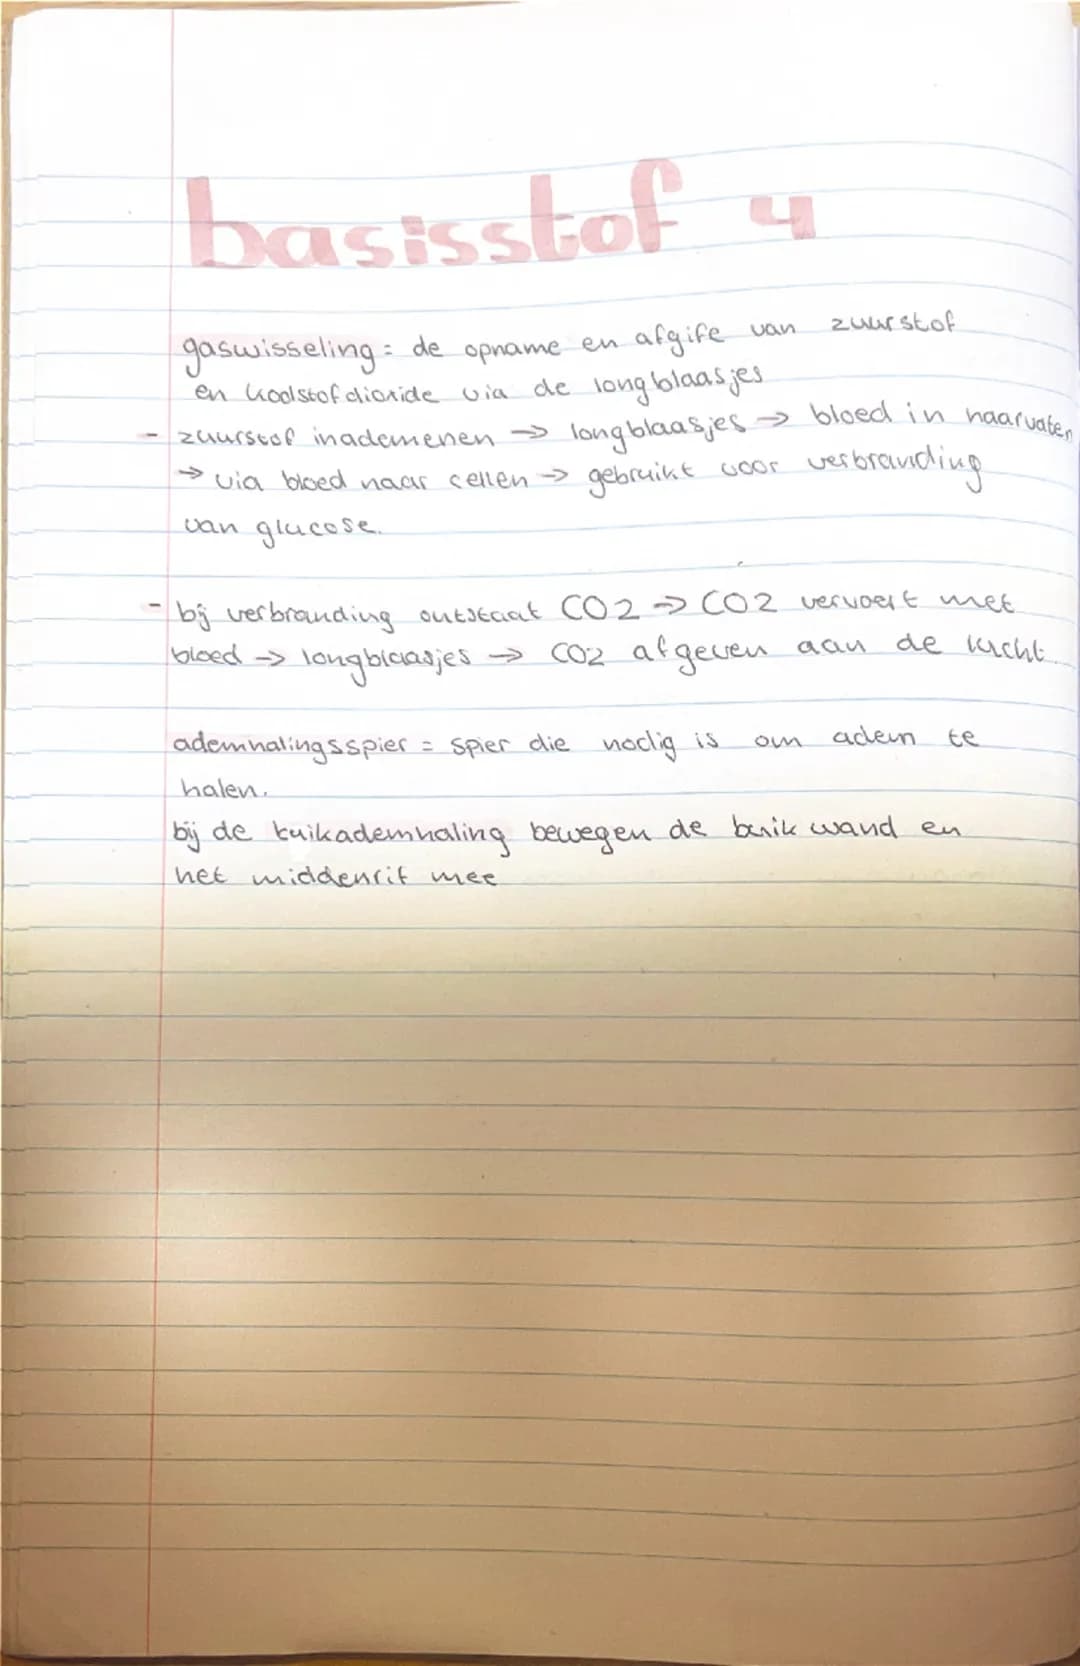 basisstof 4
gaswisseling = de opname en afgife van zuurstof
en koolstofdioxide via de longblaasjes
- zuurstof inademenen → longblaasjes → bloed in haarvaten
→ via bloed naar cellen → gebruikt voor verbranding
van glucose.
- bij verbranding ontstaat CO2 → CO2 vervoert met
bloed → longblaasjes → CO2 afgeven aan de lucht.
ademhalingsspier = spier die nodig is om adem te
halen.
bij de buikademhaling bewegen de buik wand en
het middenrif mee